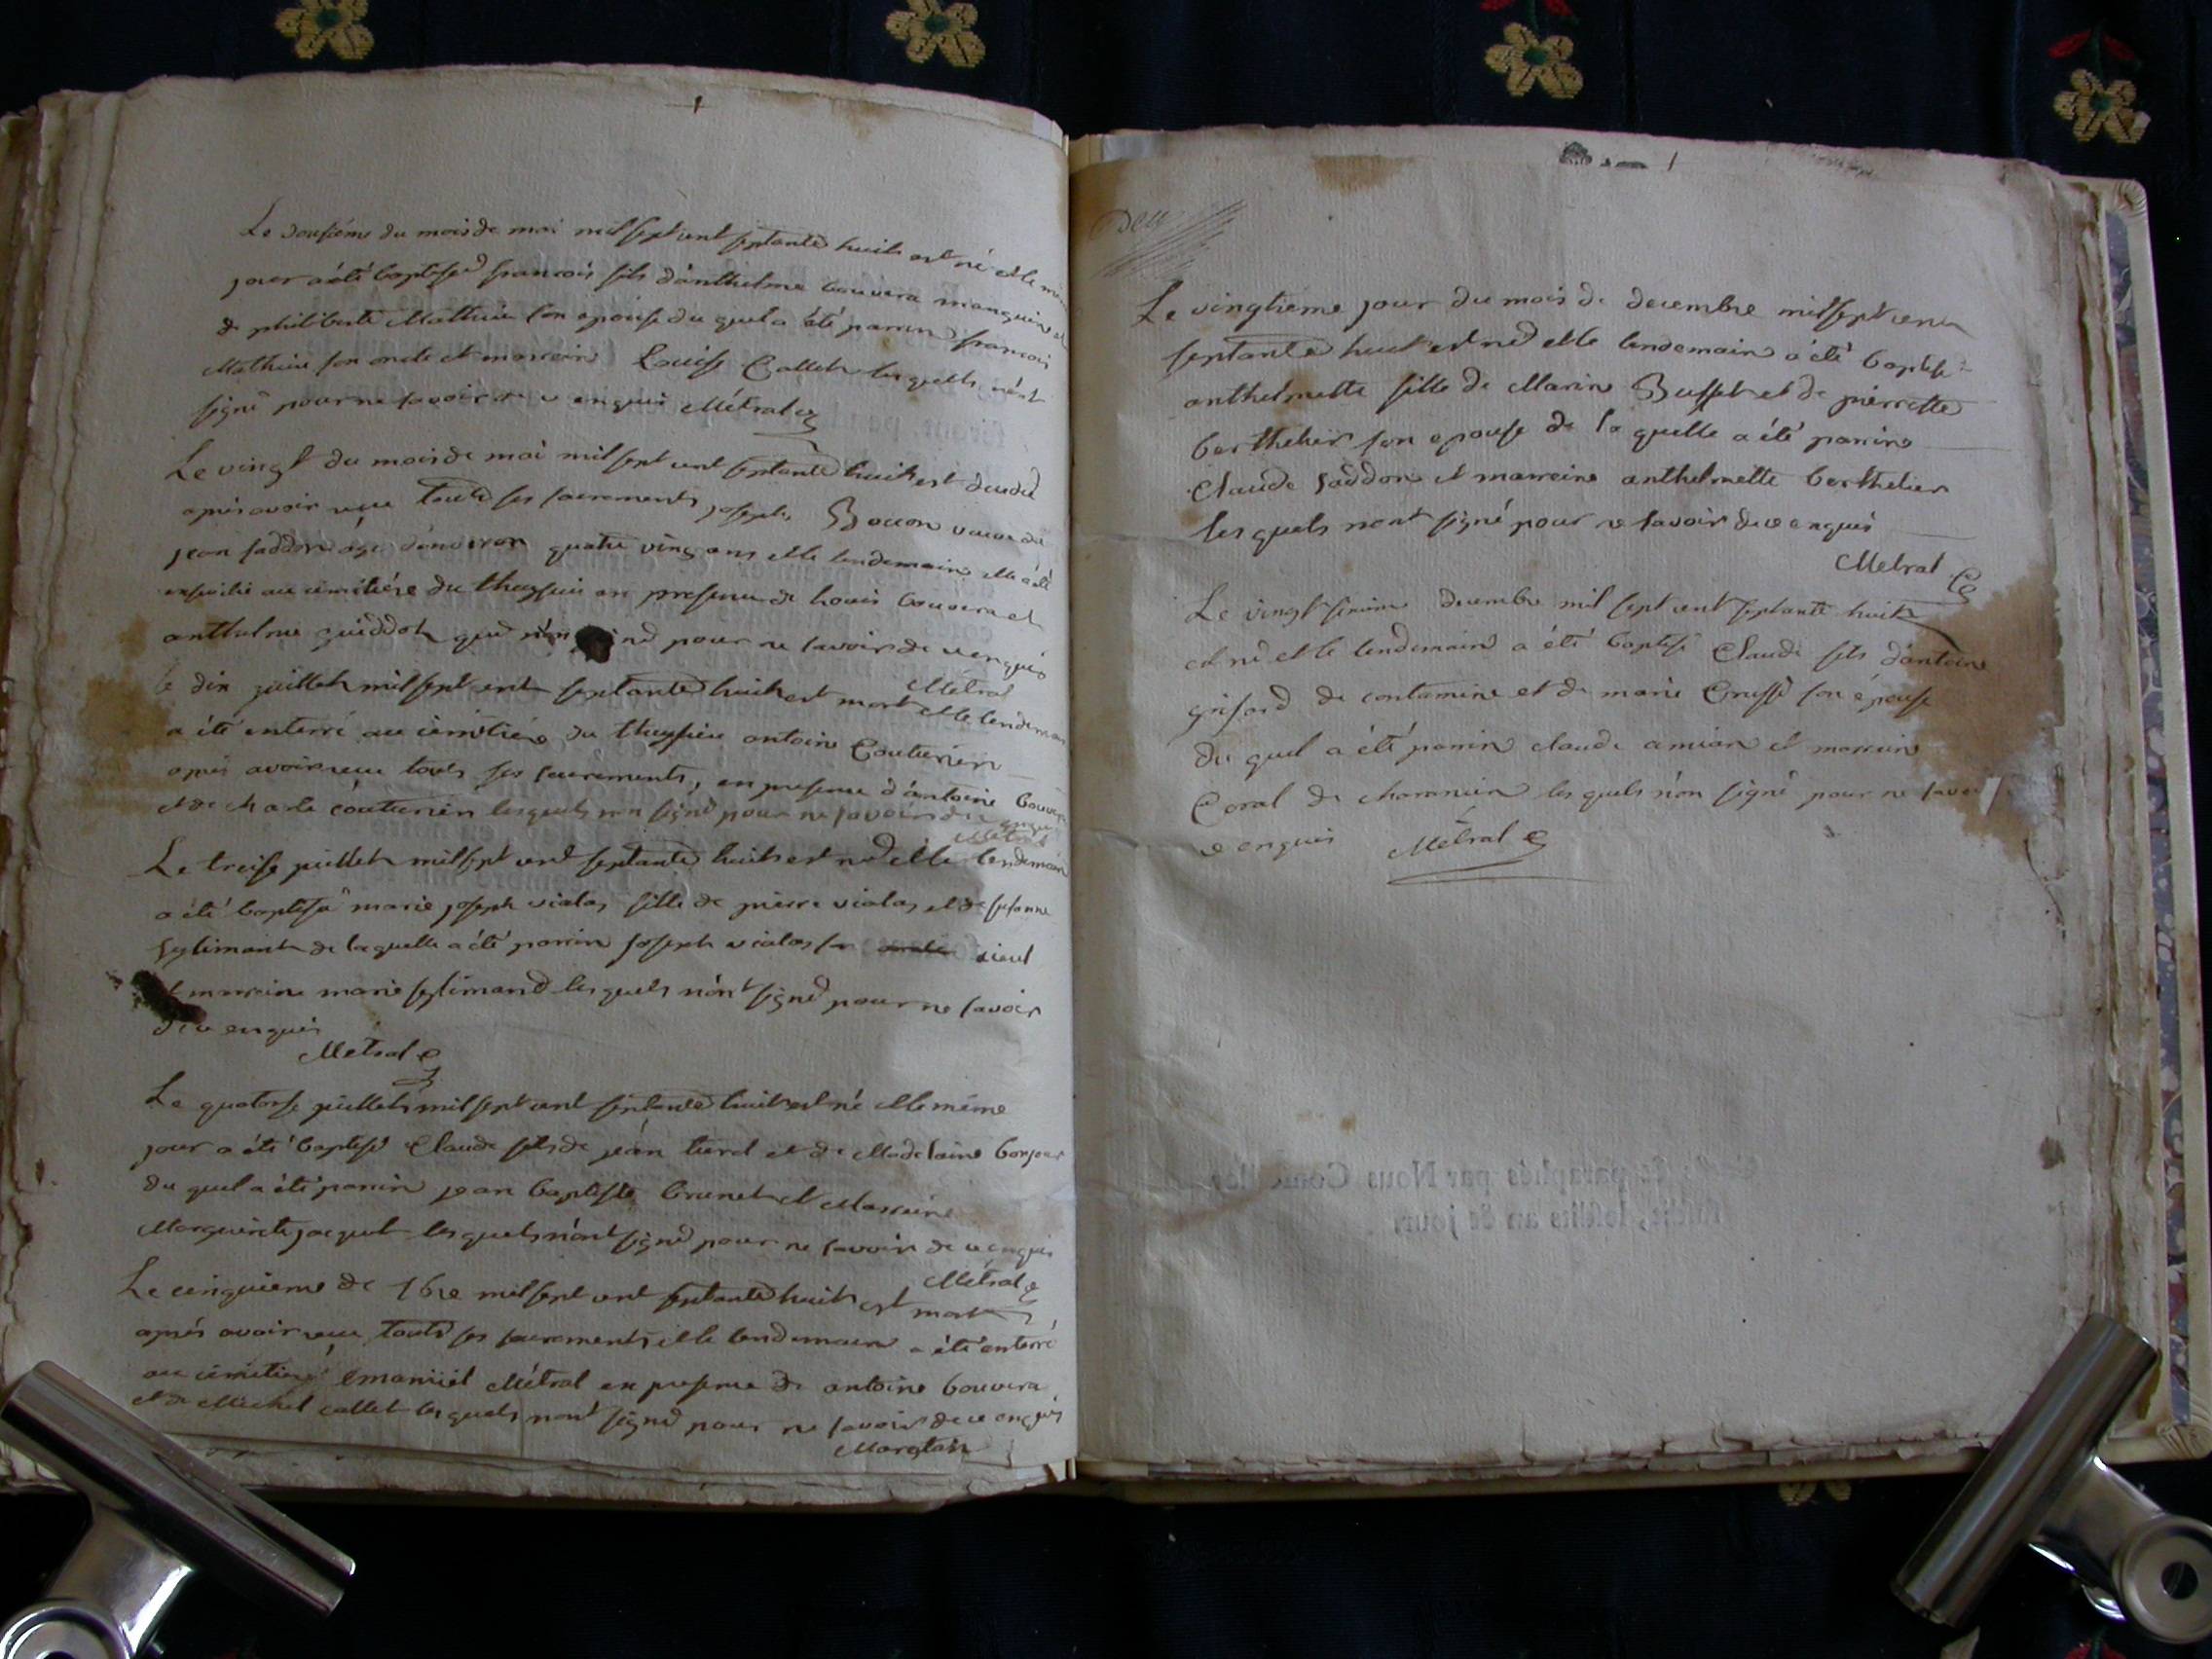 Le dousiéme du mois de mai mil sept cent septante huit est né et le mem
jour a été baptisé francois fils d'anthelme bouvera manguin et
de philiberte Mathieu son epouse du quel a été parrin francois
Mathieu son oncle et marreine Louise Callet lesquels n'ont
signé pour ne savoir de ce enquis Métral
Le vingt du mois de mai mil sept cent septante huit est décédé
apres avoir recu touts ses sacrements joseph Bocon veuve de
jean faddon agé d'environ quatre ving ans et le lendemain elle a été
ensevelie au cimitiére du theyssieu en presence de Louis bouvera et
anthelme guiddot que n'on signé pour ne savoir de ce enquis
Métral
le dix juillet mil sept cent septante huit est mort et le lendemain
a été enterré au cimitiére du theyssieu antoine Couturier
apres avoir recu touts ses sacrements, en presence d'antoine bouvera
et de charle couturier lesquels n'on signé pour ne savoir de ce enquis
Métral
Le treise juillet mil sept cent septante huit est né et le lendemain
a été baptisé marie joseph vialas fille de pierre vialas et de susanne
seglimant de laquelle a été parrin joseph vialas son aieul
et marreine marie seglimand lesquels n'ont signé pour ne savoir
de ce enquis
Métral
Le quatorse juillet mil sept cent septante huit est né et le méme
jour a été baptisé Claude fils de jean turel et de Madelaine bonjour
du quel a été parrin jean baptiste brunet et Marreine
Marguerite jacquet lesquels n'ont signé pour ne savoir de ce enquis
Métral
Le cinquieme de 7bre mil sept cent septante huit est mort
aprés avoir recu touts ses sacrements et le lendemain a été enterré
au cimitiere emaniiel Métral en presence de antoine bouvera
et de Michel callet lesquels n'ont signé pour ne savoir de ce enquis
Morgtan
Le vingtieme jour du mois de decembre mil sept cent
septante huit est né et le lendemain a été baptisé
anthelmette fille de Marin Buffet et de pierrette
berthelier son epouse de la quelle a été parrin
Claude faddon et marreine anthelmette berthelier
les quels n'ont signé pour ne savoir de ce enquis
Métral
Le vingt sixieme decembre mil sept cent septante huit
est né et le lendemain a été baptisé Claude fils d'antoine
grifard de contamine et de marie Crussi son épouse
du quel a été parrin claude amian et marreine
Coral de charnnien les quels n'on signé pour ne savoir
ce enquis Métral